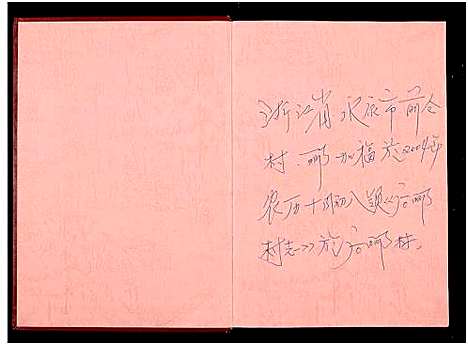 浙江省永康市前仓
村.郦加福於2004年
农历十月初八题《后郦
村志》於后郦村.